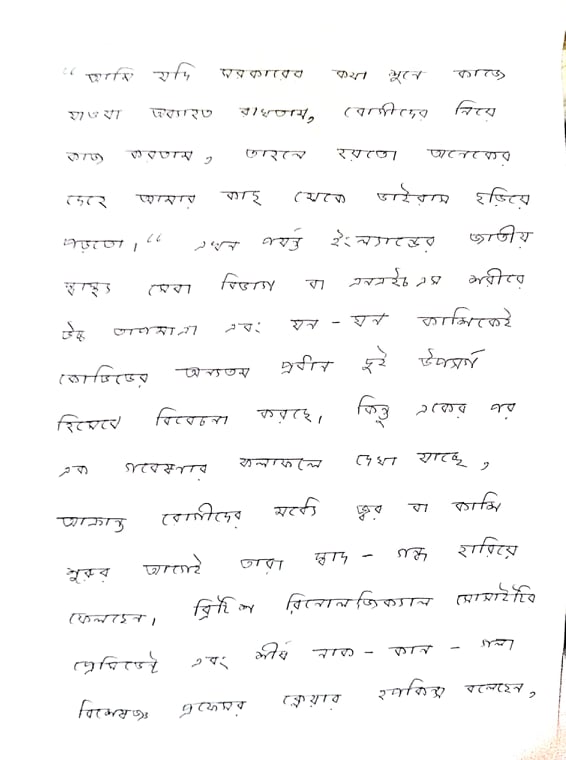 “ আমি যদি সরকারের কথা শুনে কাজে
যাওয়া অব্যাহত রাখতাম, রোগীদের নিয়ে
কাজ করতাম, তাহলে হয়তো অনেকের
দেহে আমার কাছ থেকে ভাইরাস ছড়িয়ে
পড়তো। “ এখন পর্যন্ত ইংল্যান্ডের জাতীয়
স্বাস্থ্য সেবা বিভাগ বা এনএইচএস শরীরে
উচ্চ তাপমাত্রা এবং ঘন - ঘন কাশিকেই
কোভিডের অন্যতম প্রধান দুই উপসর্গ
হিসেবে বিবেচনা করছে। কিন্তু একের পর
এক গবেষণার ফলাফলে দেখা যাচ্ছে,
আক্রান্ত রোগীদের মধ্যে জ্বর বা কাশি
শুরুর আগেই তারা স্বাদ - গন্ধ হারিয়ে
ফেলছেন। ব্রিটিশ রিনোলজিক্যাল সোসাইটির
প্রেসিডেন্ট এবং শীর্ষ নাক - কান - গলা
বিশেষজ্ঞ প্রফেসর ক্লেয়ার হপকিন্স বলেছেন,